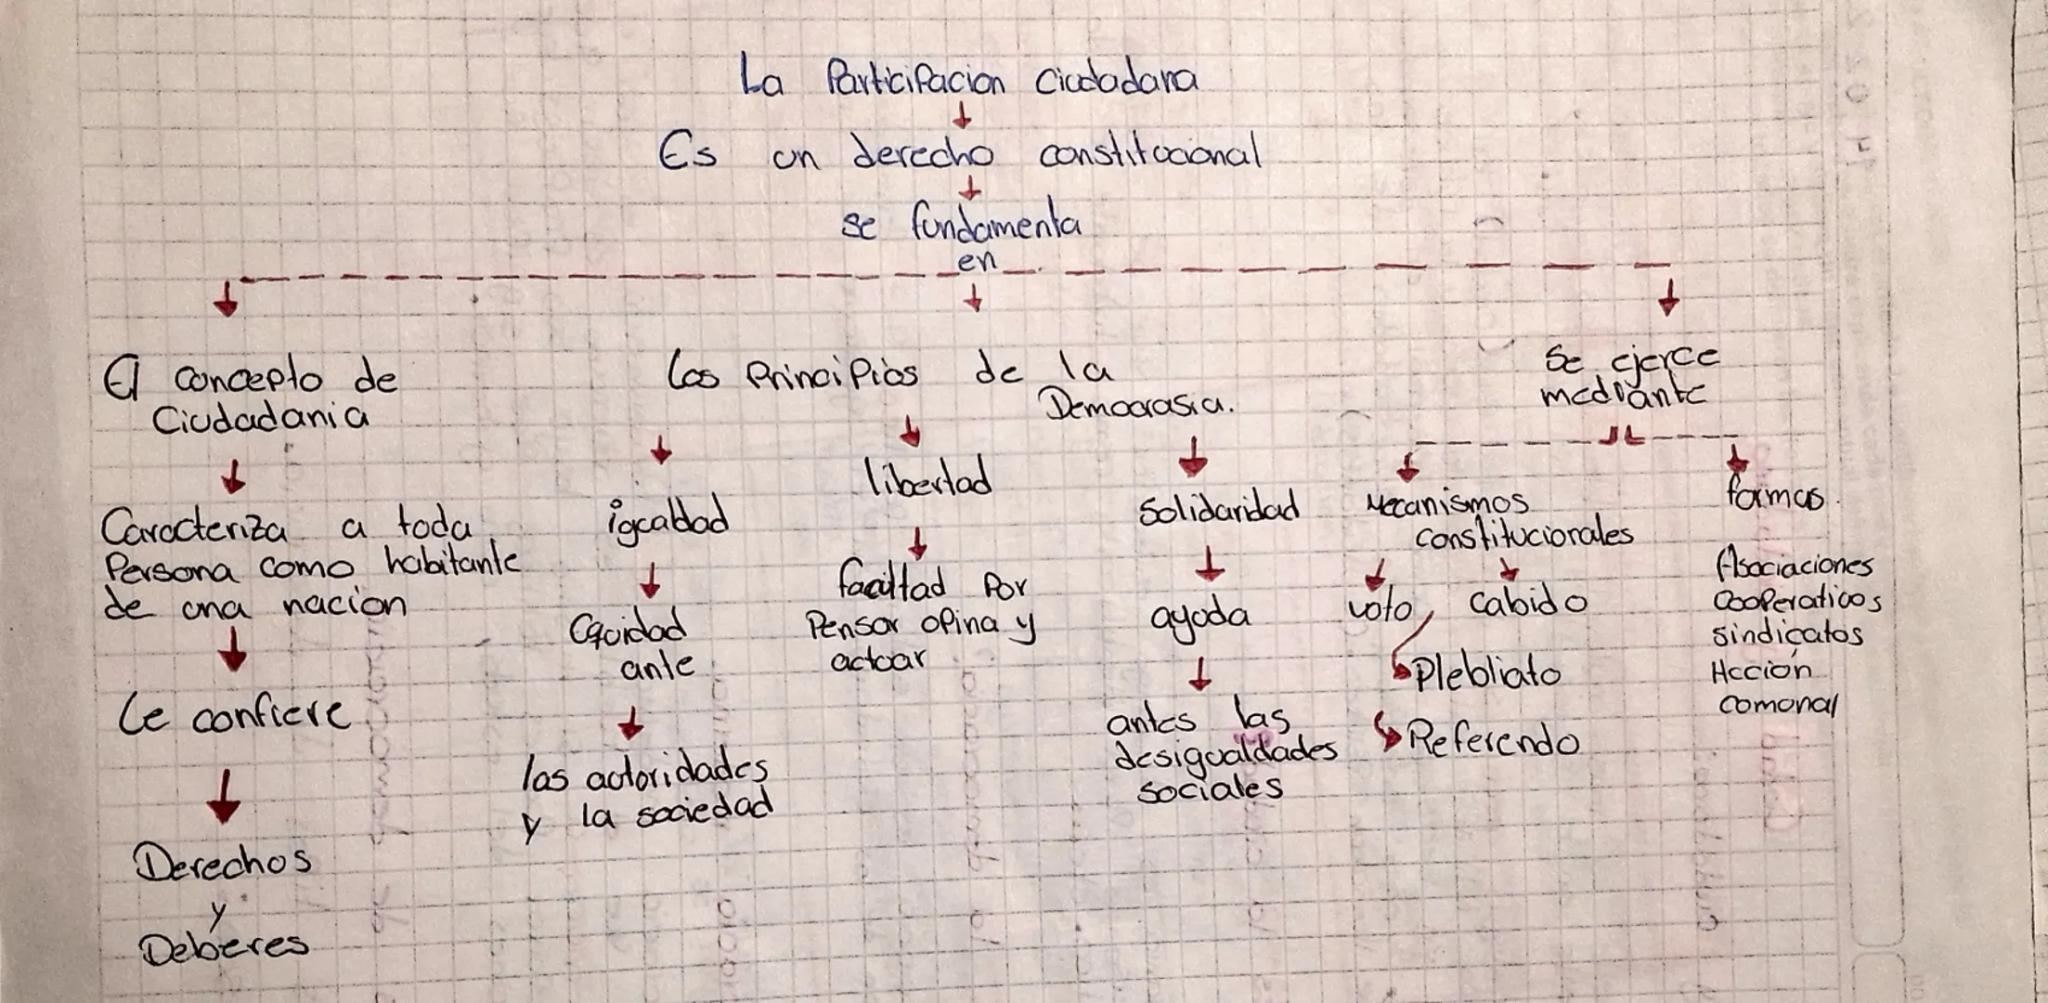 La Participacion Ciudadana
Es un derecho constitucional
se fundamenta
en
El concepto de
Ciudadania
Caracteriza a toda
Persona como habitante
de una nacion
Le confiere
Derechos
y
Deberes
Los Principios de la
Democrasia.
igualdad
Equidad
ante
las autoridades
y la sociedad
libertad
facultad Por
Pensar opina y
actuar
Solidaridad
ayuda
antes las
desigualdades
sociales
Se ejerce
mediante
Mecanismos
constitucionales
voto
Cabido
Plebliato
Referendo
formas.
Asociaciones
Cooperativas
sindicatos
Acción
comunal